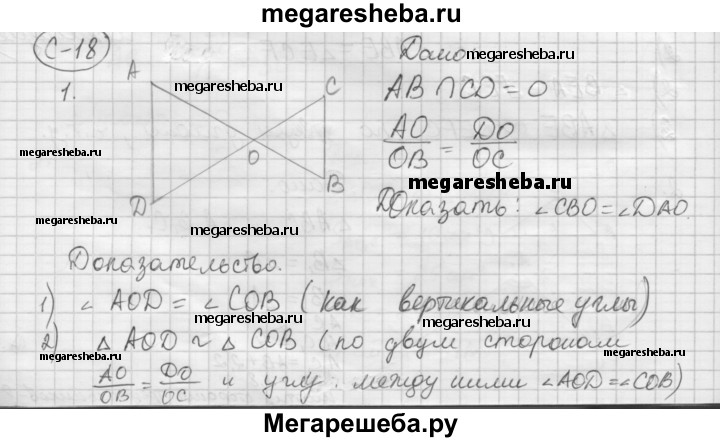 megaresheba.ru
С-18
Дано:
1.
A
megaresheba.ru
C
AB ∩ CD = O
megaresheba.ru
O
AO/OB = DO/OC
megaresheba.ru
B
D
Доказать: ∠CBO = ∠DAO.
megaresheba.ru
megaresheba.ru
Доказательство.
1) ∠AOD = ∠COB (как вертикальные углы)
megaresheba.ru
megaresheba.ru
2) △AOD ~ △COB (по двум сторонам
megaresheba.ru
megaresheba.ru
AO/OB = DO/OC и углу между ними ∠AOD = ∠COB)
Мегарешеба.ру